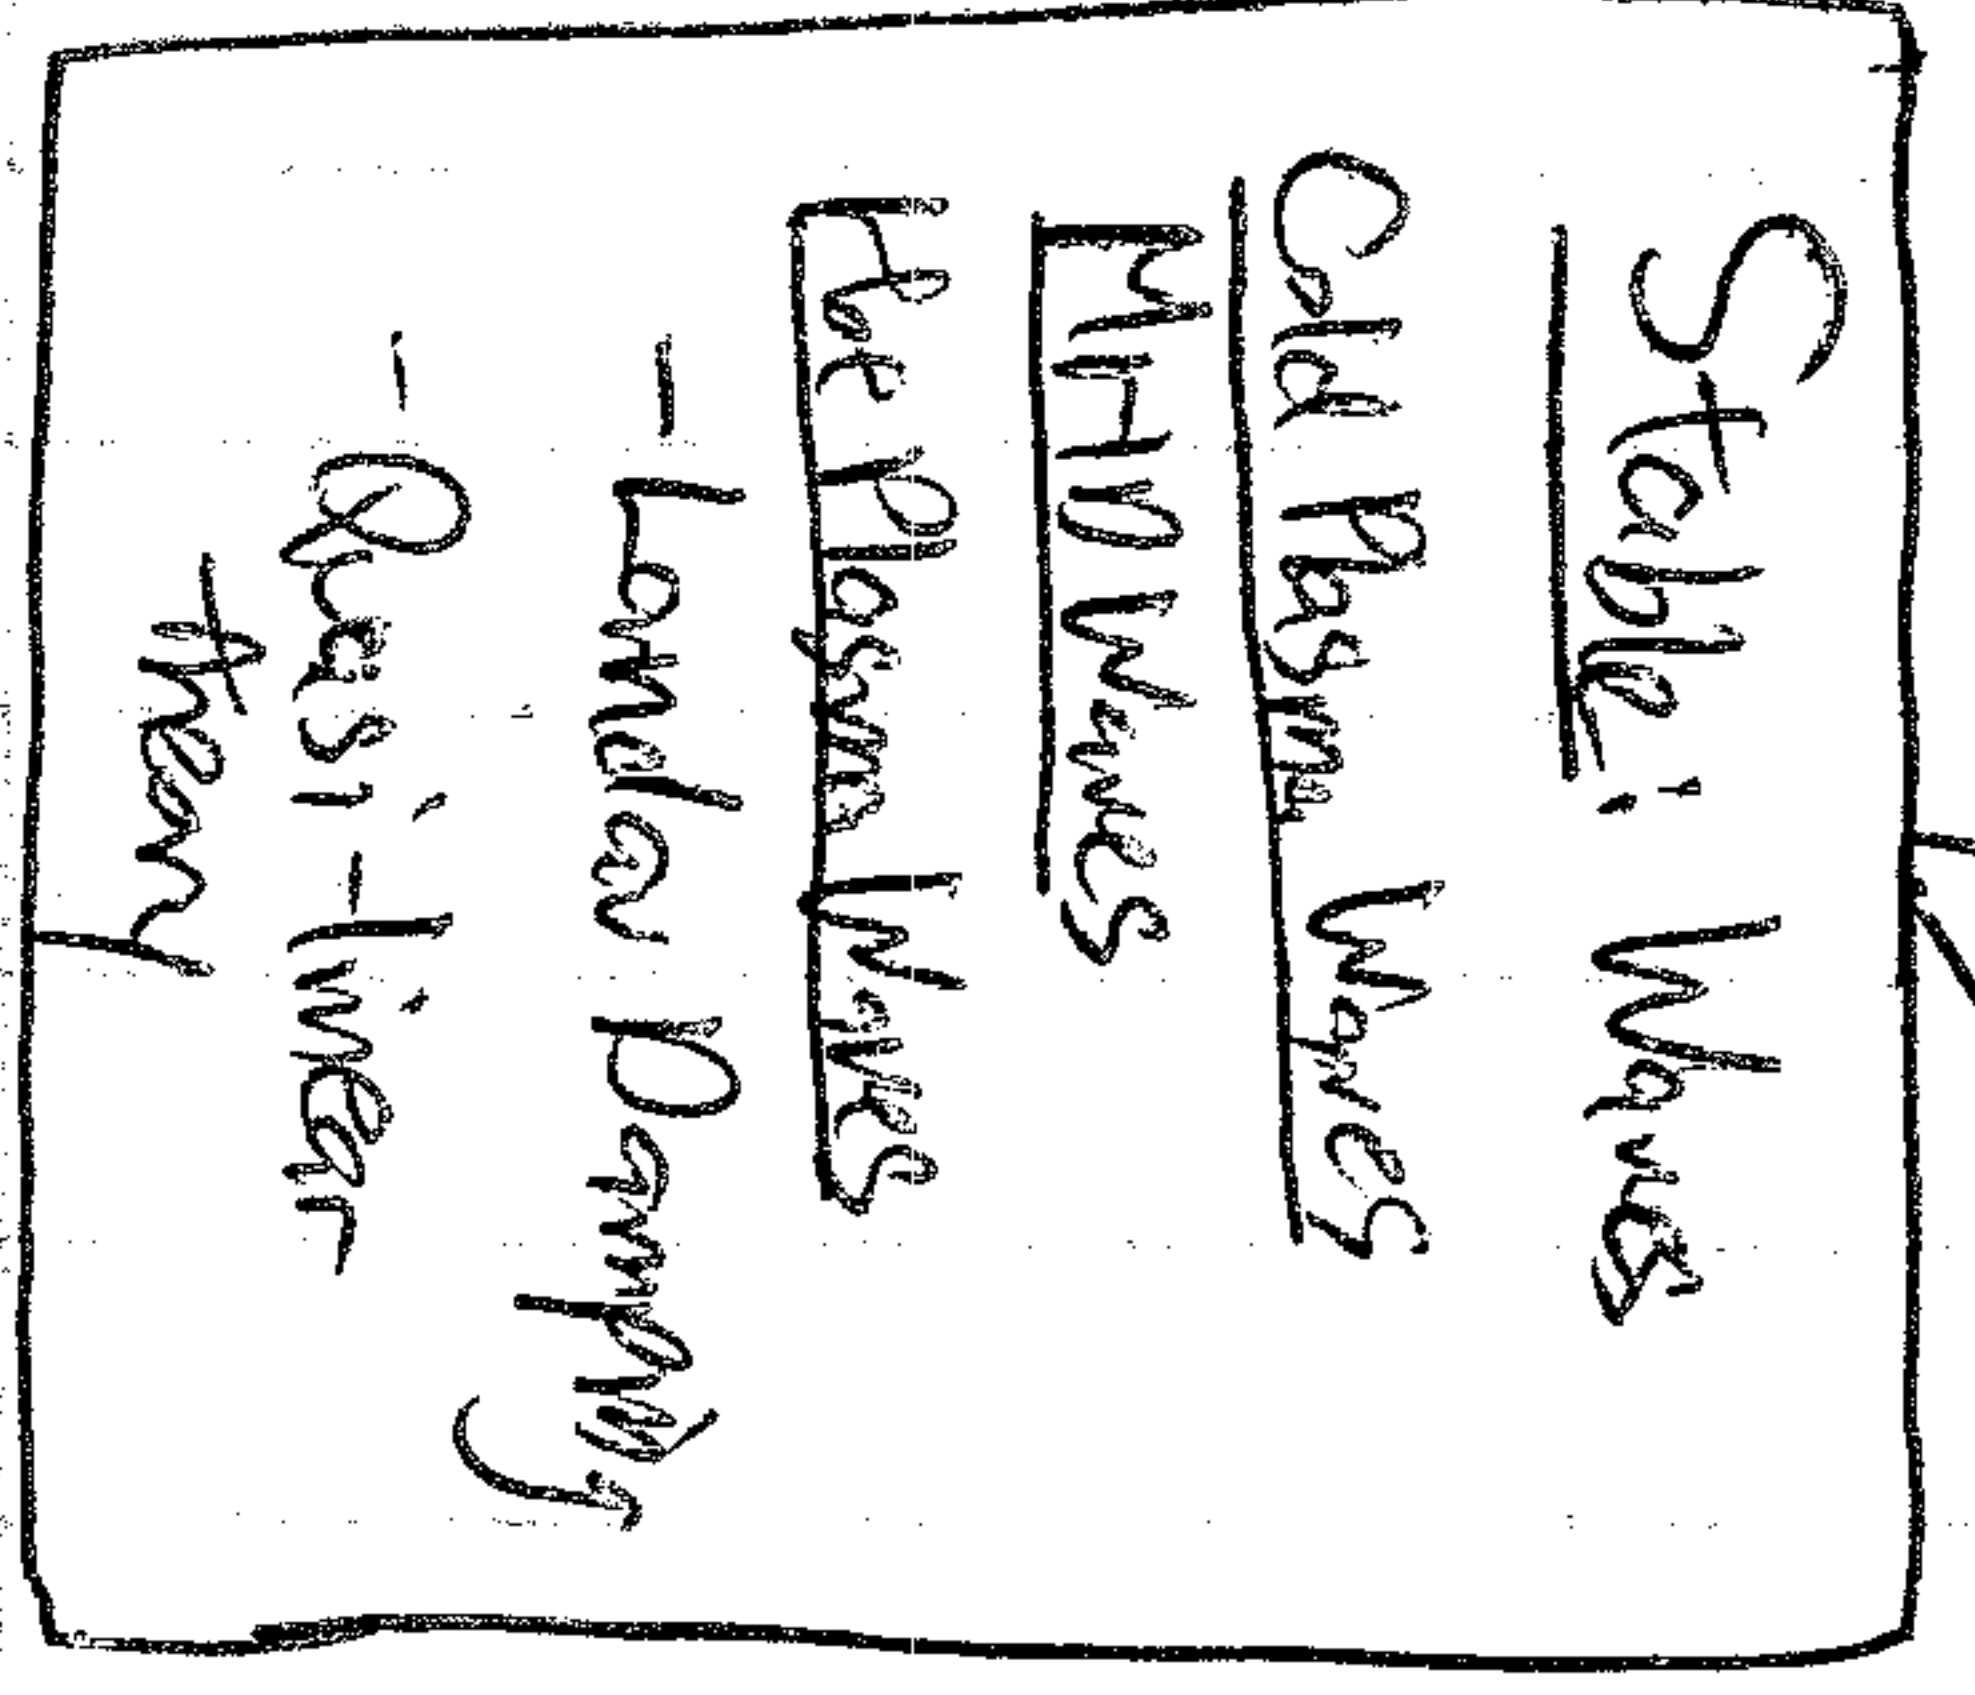 Stable: Waves
Cold Plasma Waves
MHD Waves
Hot Plasma Waves
- Landau Damping
- Quasi-linear
theory